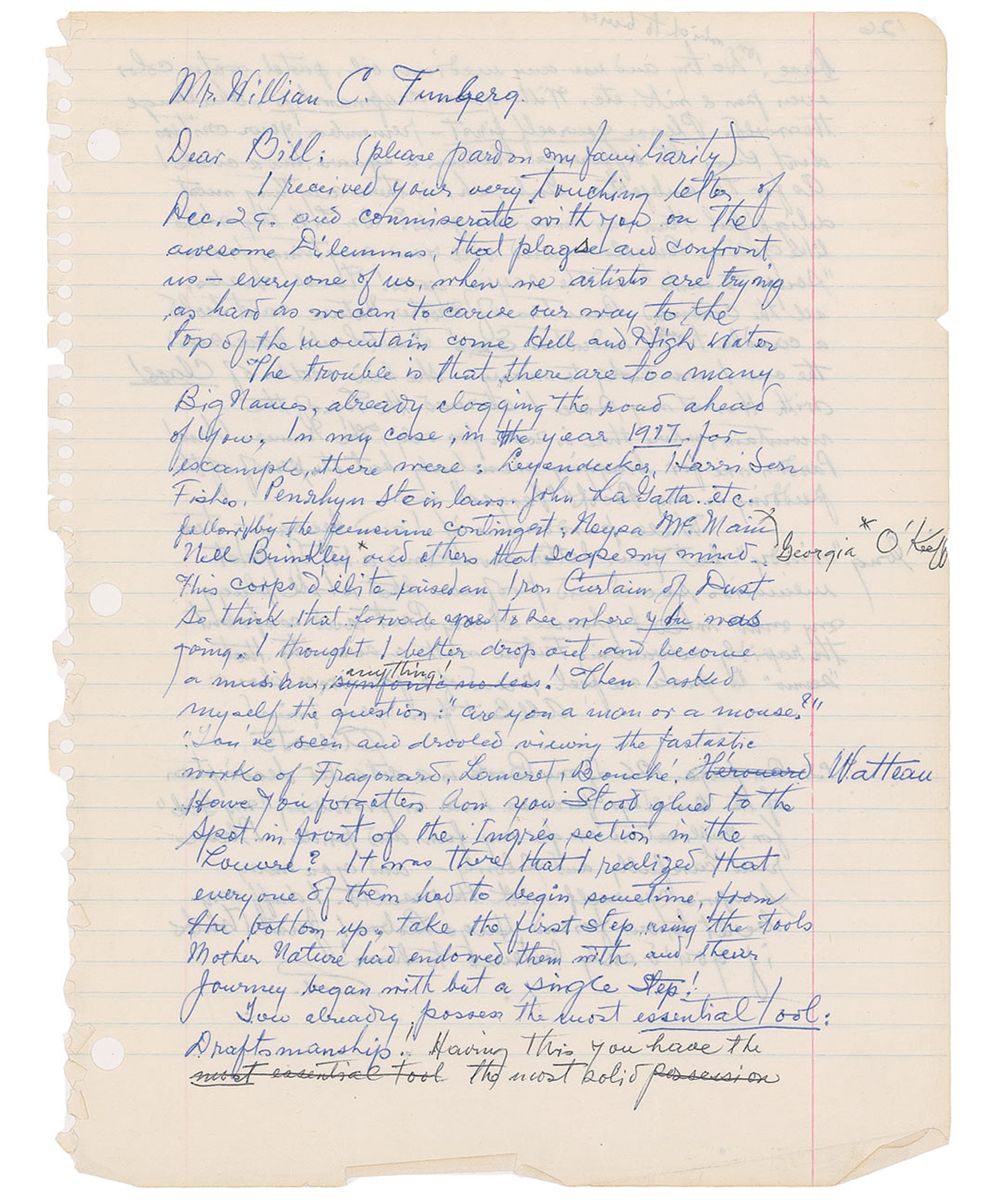 Mr. Willian C. Tunberg.
Dear Bill: (please pardon my familiarity)
I received your very touching letter of
Dec. 29. and commiserate with you on the
awesome Dilemmas, that plague and confront
us – everyone of us, when we artists are trying
as hard as we can to carve our way to the
top of the mountain come Hell and High Water
The trouble is that there are too many
Big Names, already clogging the road ahead
of you. In my case, in the year 1917. for
escample, there were: Leyendecker, Harrison
Fisher, Penrhyn Stanlaws. John LaGatta. etc.
by the feminine contingent: Neysa Mc.Main
Nell Brinkley * and others that scape my mind. Georgia * O'Keeff
This corps d'elite raised an Iron Curtain of Dust
so thick that forvade you to see where you was
going. I thought I better drop out and become
anything!
a musician, symfonic no less! Then I asked
myself the question: "are you a man or a mouse?"
"You've seen and drooled viewing the fastastic
works of Fragonard, Lancret, Bouché. Herouard Watteau
Have You forgotten how you Stood glued to the
spot in front of the Ingrés section in the
Louvre? It was there that I realized that
everyone of them had to begin sometime, from
the bottom up, take the first step using the tools
Mother Nature had endowed them with and their
Journey began with but a single Step!
You already possess the most essential tool:
Draftsmanship! Having this, you have the
most essential tool the most solid possession